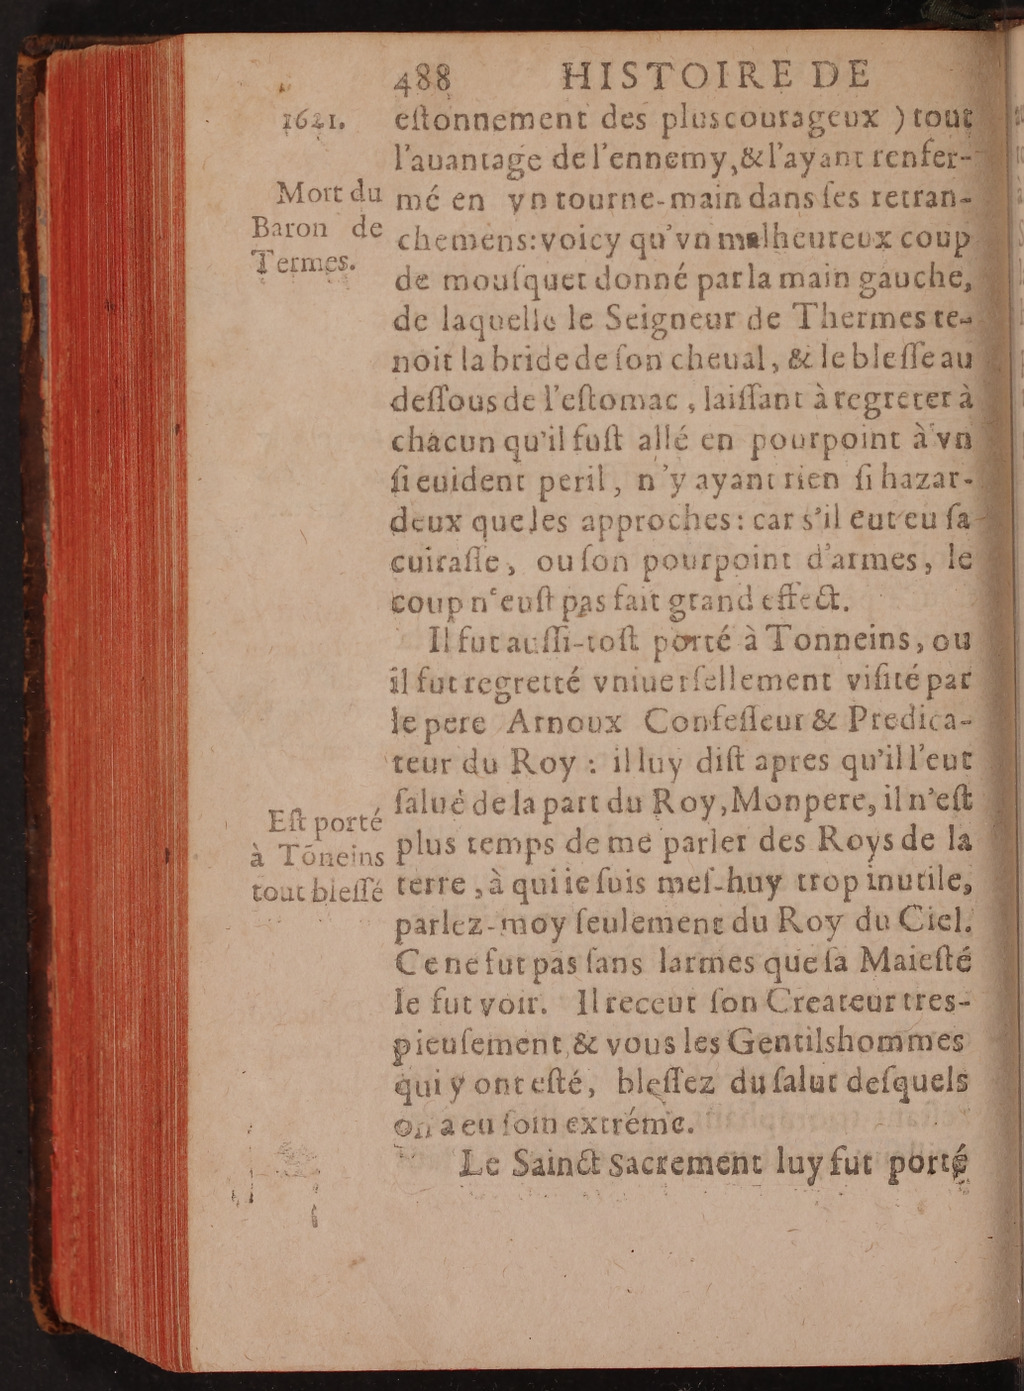 488 HISTOIRE DE
1621.
eſtonnement des plus courageux ) tout
l'auantage de l'ennemy, & l'ayant renfer-
Mort du
Baron de
Termes.
mé en vn tourne-main dans ſes retran-
chemens: voicy qu'vn malheureux coup
de mouſquet donné par la main gauche,
de laquelle le Seigneur de Thermes te-
noit la bride de ſon cheual, & le bleſſe au
deſſous de l'eſtomac, laiſſant à regreter à
chacun qu'il fuſt allé en pourpoint à vn
ſi euident peril, n'y ayant rien ſi hazar-
deux que les approches: car s'il eut eu ſa
cuiraſſe, ou ſon pourpoint d'armes, le
coup n'euſt pas fait grand effect.
Il fut auſſi-toſt porté à Tonneins, ou
il fut regretté vniuerſellement viſité par
le pere Arnoux Confeſſeur & Predica-
teur du Roy : il luy diſt apres qu'il l'eut
ſalué de la part du Roy, Mon pere, il n'eſt
Eſt porté
à Tōneins
tout bleſſé
plus temps de me parler des Roys de la
terre, à qui ie ſuis meſ-huy trop inutile,
parlez-moy ſeulement du Roy du Ciel.
Ce ne fut pas ſans larmes que ſa Maieſté
le fut voir. Il receut ſon Createur tres-
pieuſement & vous les Gentilshommes
qui y ont eſté, bleſſez du ſalut deſquels
on a eu ſoin extréme.
Le Sainct Sacrement luy fut porté